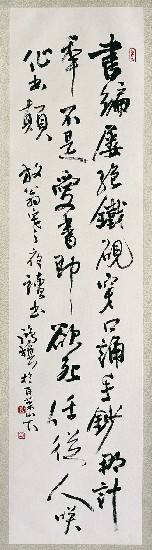 韋編屢絕鐵硯穿口誦手鈔那計
年不是愛書即欲死任從人咲
作書顛 放翁寒夜讀書